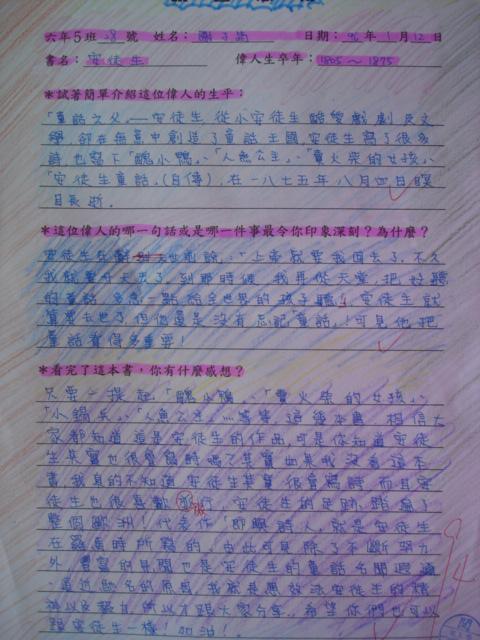 六年5班28號 姓名： 日期：96年1月12日
書名：安徒生 偉人生卒年：1805～1875
*試著簡單介紹這位偉人的生平：
「童話之父」——安徒生 從小安徒生酷愛戲劇及文
學，卻在無意中創造了童話王國，安徒生寫了很多
詩，也寫下「醜小鴨」、「人魚公主」、「賣火柴的女孩」、
「安徒生童話」(自傳)，在一八七五年八月四日瞑
目長逝。
*這位偉人的哪一句話或是哪一件事最令你印象深刻？為什麼？
安徒生在 世前說：「上帝就要我回去了，不久
我就要升天去了，到那時候，我再從天堂，把好聽
的童話，多 一點給全世界的孩子聽」，安徒生就
算要去世了，但他還是沒有忘記童話，！可見他把
童話看得多重要！
*看完了這本書，你有什麼感想？
只要一提起，「醜小鴨」、「賣火柴的女孩」、
「小錫兵」、「人魚公主」…等等，這 本書，相信大
家都知道這是安徒生的作品，可是你知道安徒
生其實也很會寫詩嗎？其實如果我沒看這本
書，我真的不知道安徒生其實很會寫詩，而且安
徒生也很喜歡 行，安徒生的足跡踏遍了
整個歐洲！代表作「即興詩人」就是安徒生
在羅馬時所寫的，由此可見除了不斷努力
外，豐富的見聞也是安徒生的童話名聞遐邇
、遠近馳名的原因，我就是想效法安徒生的精
神以及 所以才跟大家分享，希望你們也可以
跟安徒生一樣！加油！